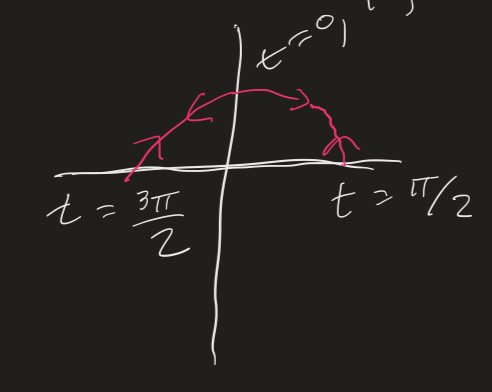 t = 0,
t = 3π/2
t = π/2